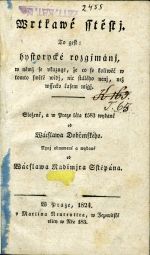 2455
Wrtkawé sstěstj.
To gest:
hystorycké rozgjmánj,
w němž se ukazuge, že co se koliwěk w
tomto swětě widj, nic stálého nenj, než
wssecko časem migj.
Složené, a w Praze léta 1583 wydané
od
Wácslawa Dobřenského.
Nynj obnowené a wydané
od
Wácslawa Radimjra Sstěpána.
W Praze, 1824.
u Martina Neureutra, w Jezowitské
ulici w Nro 183.